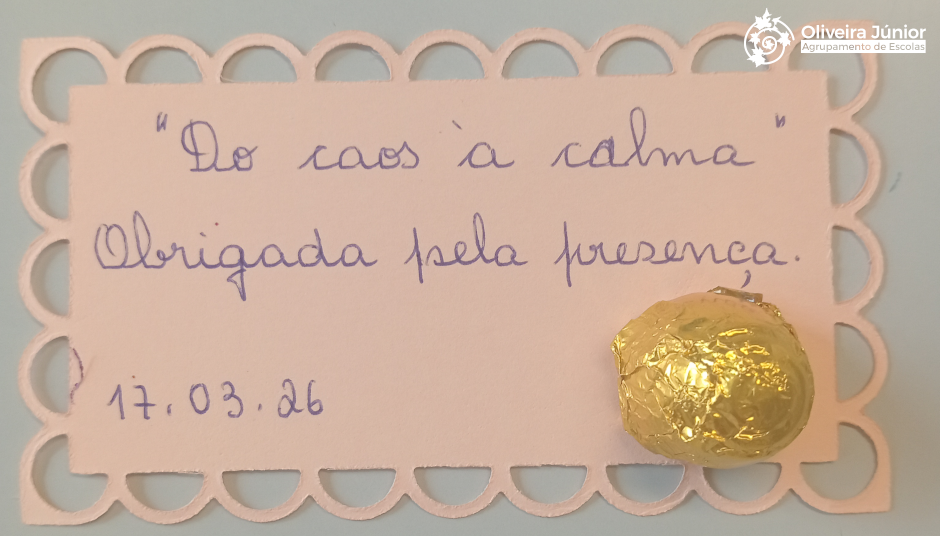 Oliveira Júnior
Agrupamento de Escolas
"Do caos à calma"
Obrigada pela presença.
17.03.26